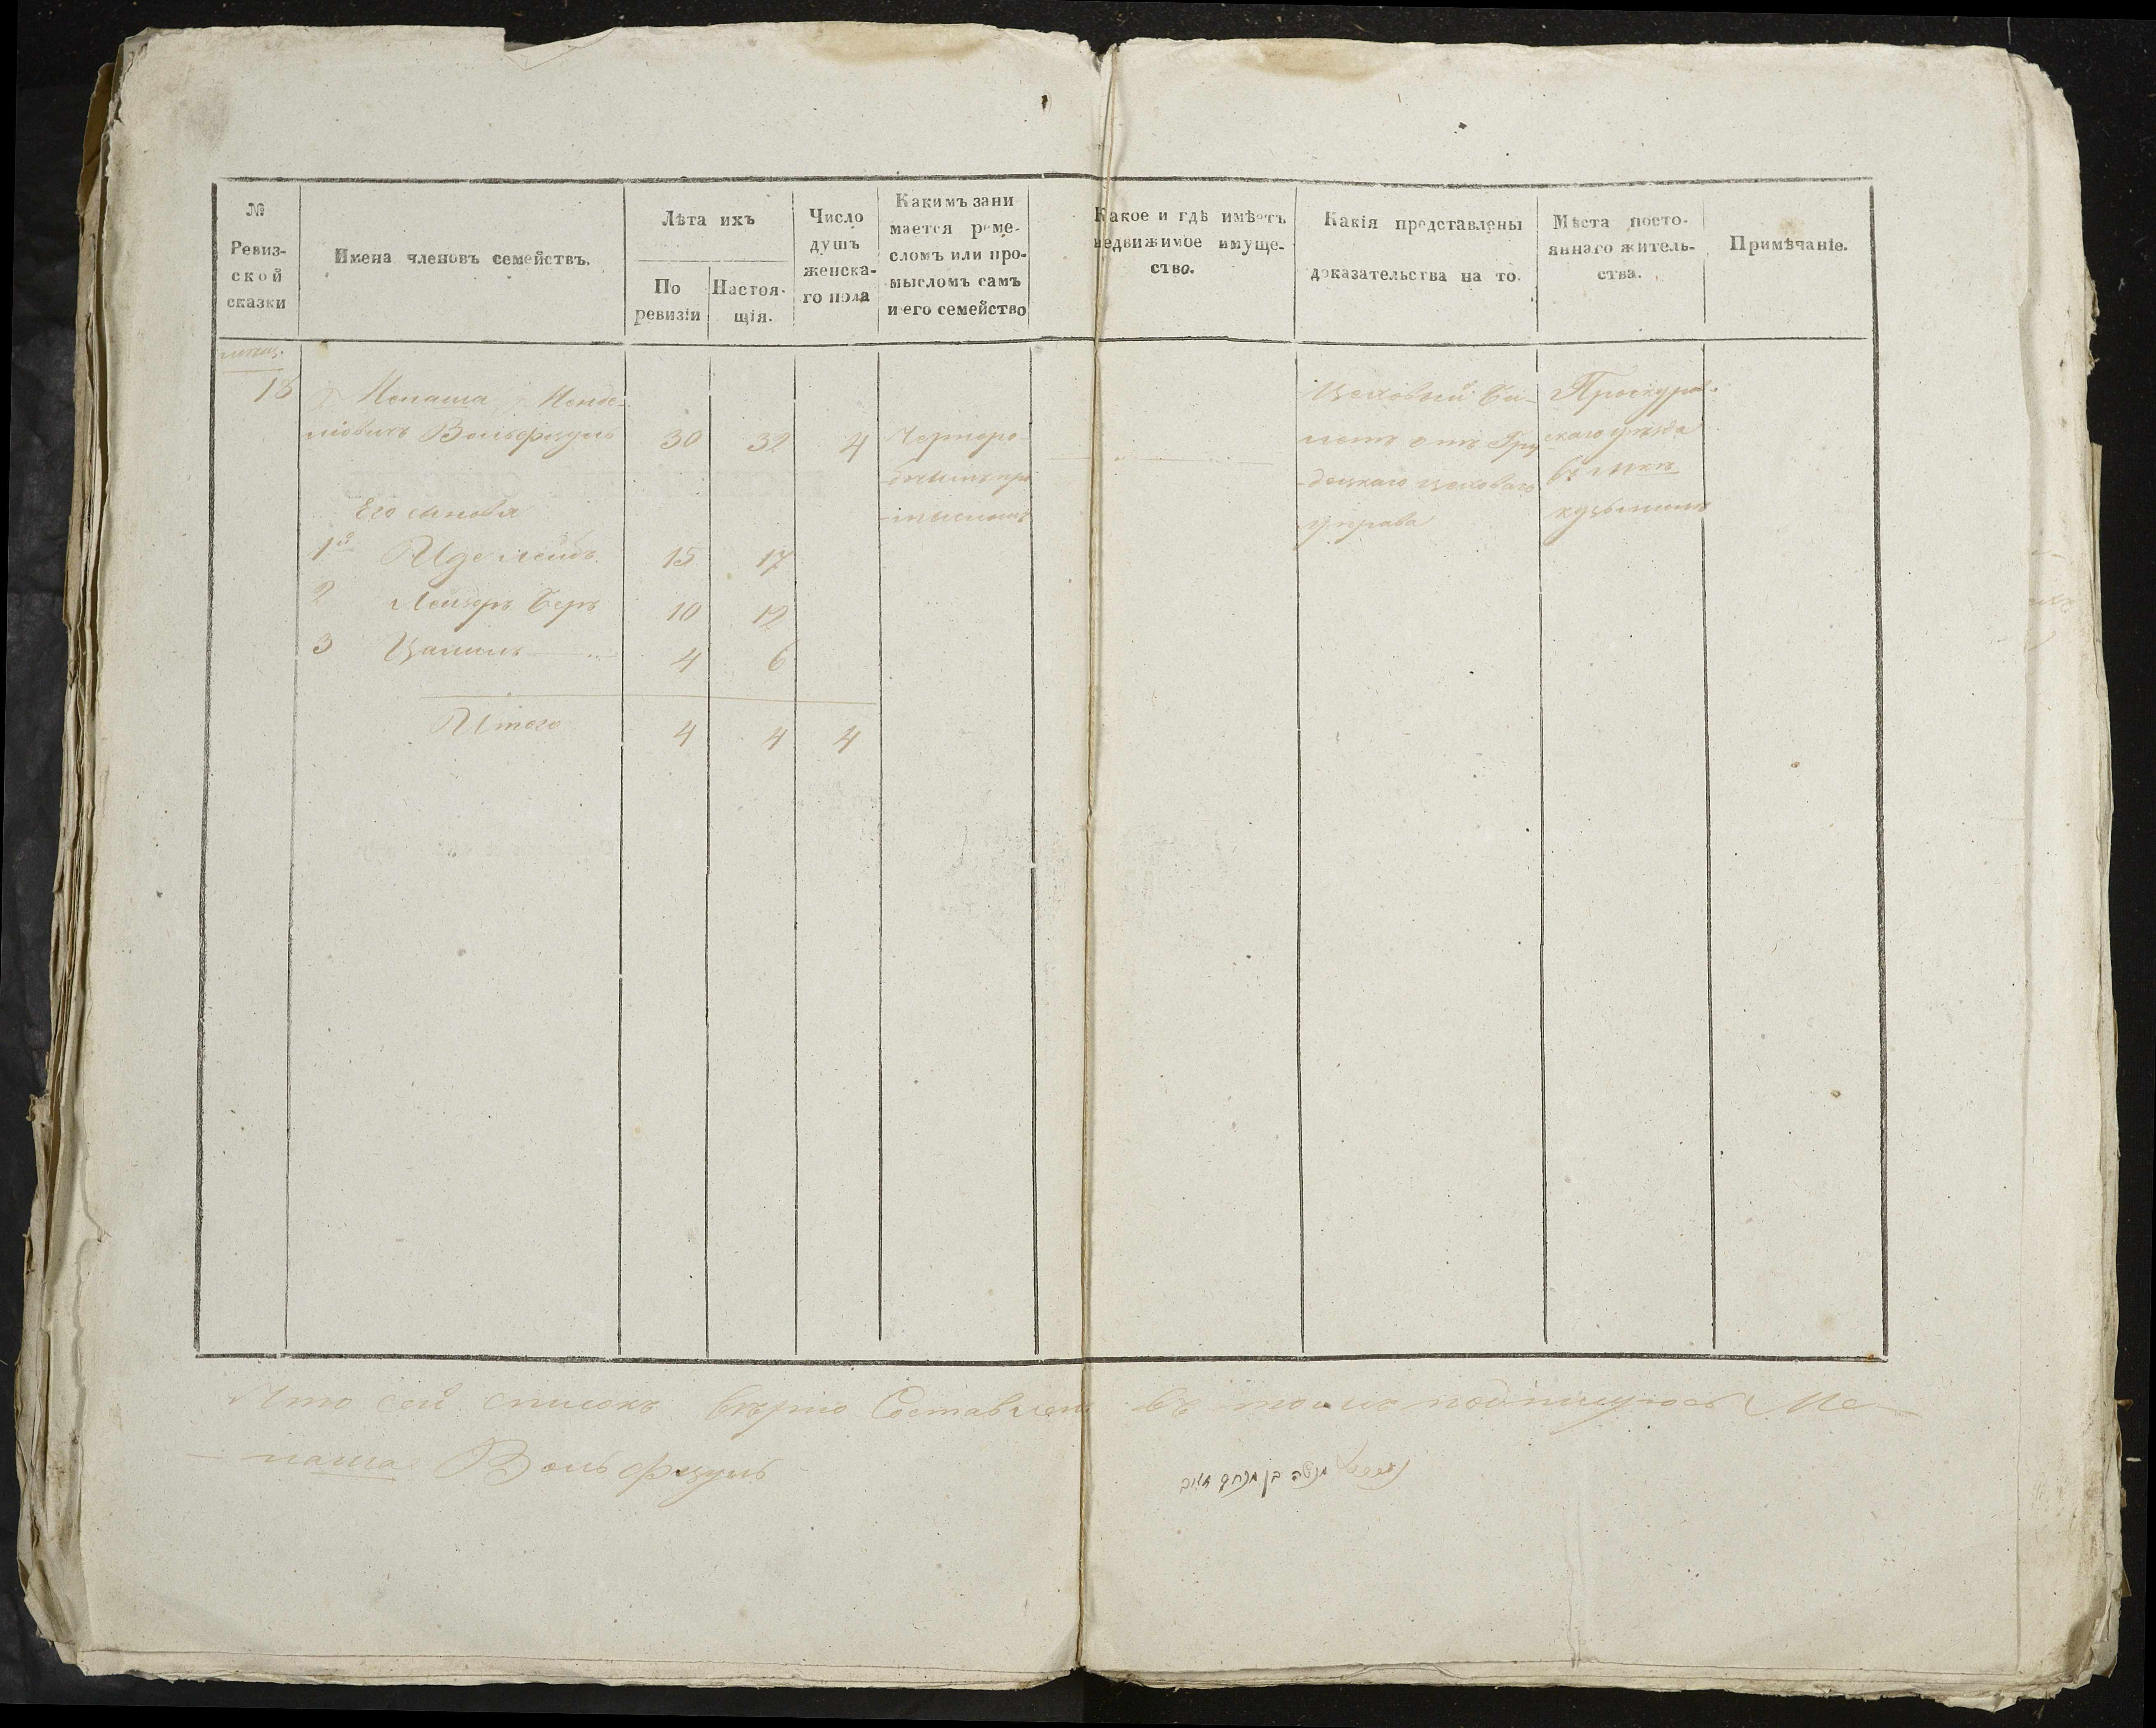 №
Ревиз-
ской
сказки
Имена членовъ семействъ.
Лѣта ихъ
По
ревизіи
Настоя-
щія.
Число
душъ
женска-
го пола
Какимъ зани
мается реме-
сломъ или про-
мысломъ самъ
и его семейство
Какое и гдѣ имѣетъ
недвижимое имуще-
ство.
Какія представлены
доказательства на то.
Мѣста посто-
яннаго житель-
ства.
Примѣчаніе.
18
Менаша Менде-
ліовичъ Вольфцунъ 30 32 4
Чернора-
-бочимъ про
-мысломъ
Цеховый би-
летъ отъ
-децкаго цеховаго
управа
Проскуров-
скаго уѣзда
въ мкѣ
кузьминѣ
Его сыновя
1й 15 17
2 Лейзоръ Беръ 10 12
3 4 6
Итого 4 4 4
Что сей списокъ вѣрно Составленъ въ томъ подпишуюсь Ме-
-наша Вольфцунъ
מנשה בן